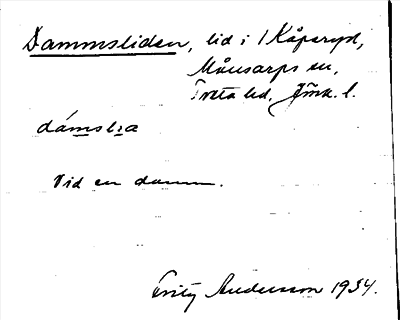 Dammsliden, lid i 1 Kåperyd,
Månsarps sn,
Tveta hd, Jönk. l.
dámslıa
Vid en damm.
Fritz Andersson 1934.